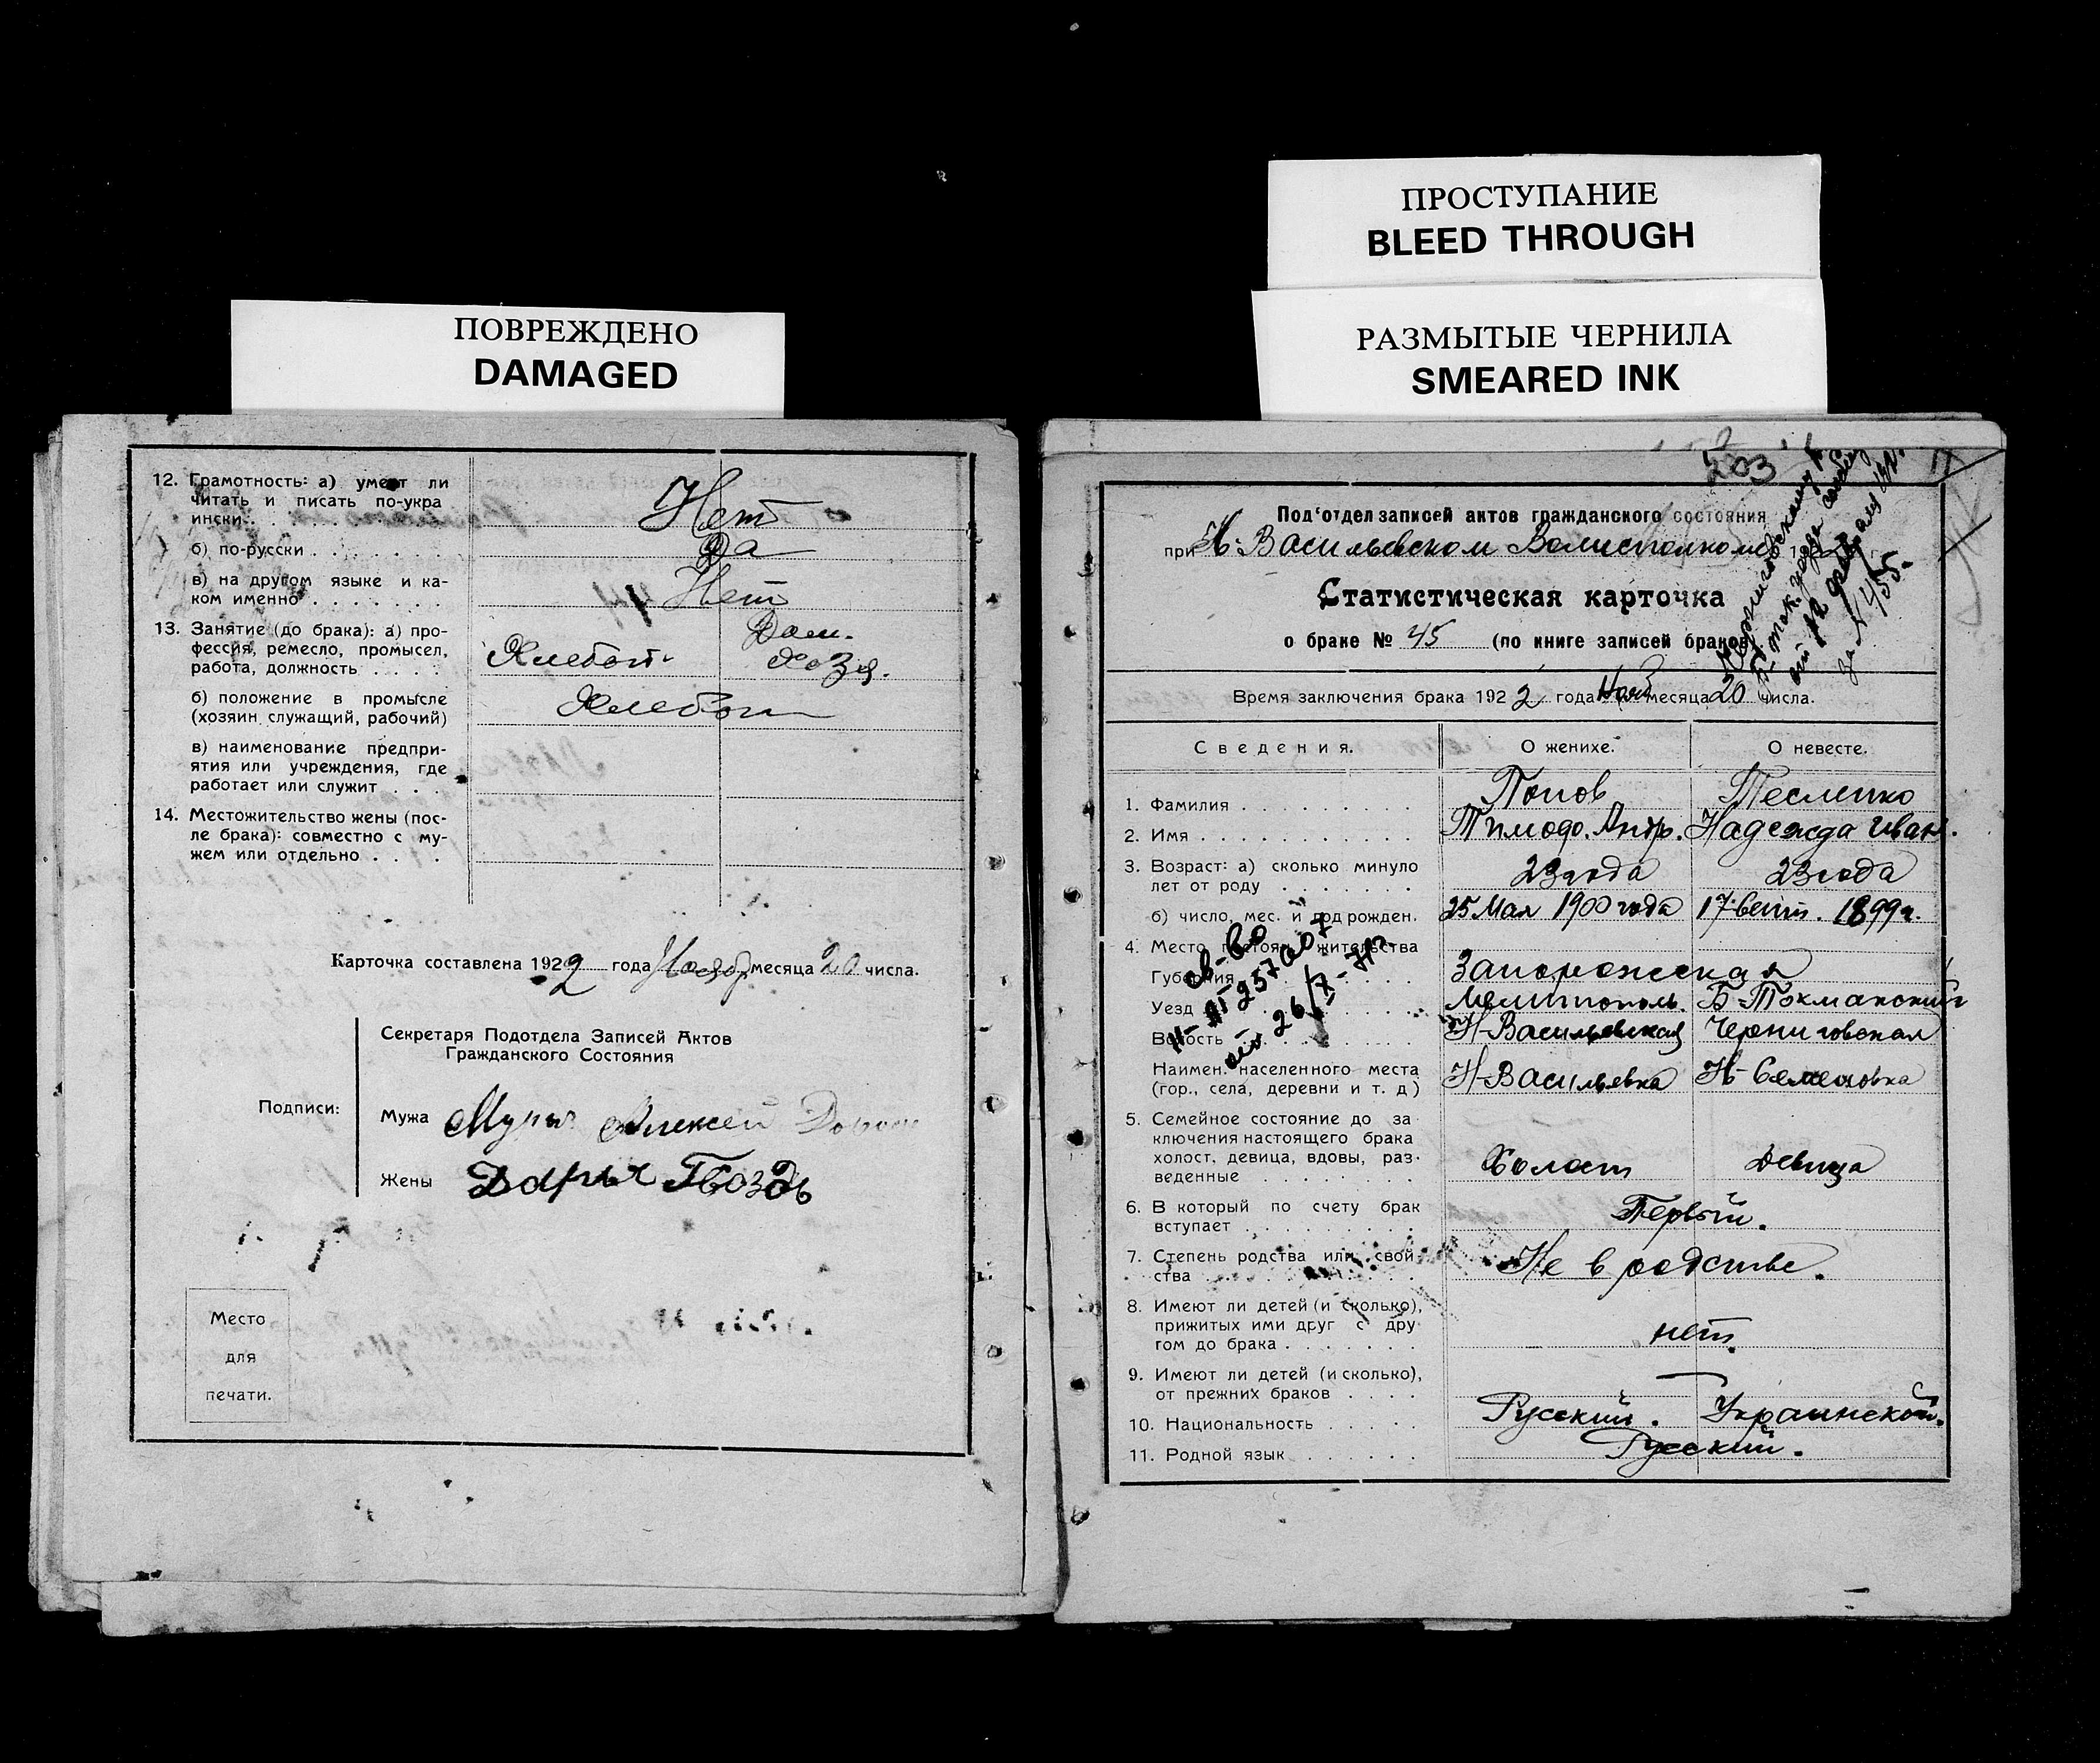 ПОВРЕЖДЕНО
DAMAGED
12. Грамотность: а) умеет ли
читать и писать по-укра
ински . . . . . . Нет
б) по-русски . . . . . . . Да
в) на другом языке и ка-
ком именно . . . . . . . Нет
13. Занятие (до брака): а) про-
фессия, ремесло, промысел,
работа, должность . . . . Хлебоп. Дом. Хозя.
б) положение в промысле
(хозяин служащий, рабочий) Хлебоп
в) наименование предпри-
ятия или учреждения, где
работает или служит . . .
14. Местожительство жены (пос-
ле брака): совместно с му-
жем или отдельно . . . .
Карточка составлена 1922 года Нояб месяца 20 числа.
Секретаря Подотдела Записей Актов
Гражданского Состояния
Подписи:
Мужа Алексей
Жены Дарья Гвоздь
Место
для
печати.
ПРОСТУПАНИЕ
BLEED THROUGH
РАЗМЫТЫЕ ЧЕРНИЛА
SMEARED INK
203
Под'отдел записей актов гражданского состояния
при Н-Васильевском Волисполкоме 192
Статистическая карточка
о браке № 45 (по книге записей браков)
за № 455.
Время заключения брака 1922 года Нояб месяца 20 числа.
Сведения. О женихе. О невесте.
1. Фамилия . . . . . . . . . Попов Тесленко
2. Имя . . . . . . . . . . . Тимоф. Андр. Надежда Иван.
3. Возраст: а) сколько минуло
лет от роду . . . . . . . 23 года 23 года
б) число, мес. и год рожден. 25 Мая 1900 года 17 сент. 1899 г.
4. Место постоян. жительства
Губерния Запорожская
Уезд Мелитополь. Б-Токманский
Волость Н-Васильевская Черниговская
Наимен. населенного места
(гор., села, деревни и т. д) Н-Васильевка Н-Семеновка
св-во
от 26/X-
5. Семейное состояние до за-
ключения настоящего брака
холост, девица, вдовы, раз-
веденные . . . . . . . . Холост Девица
6. В который по счету брак
вступает . . . . . . . . . Первый.
7. Степень родства или свой-
ства . . . . . . . . . . . Не в родстве.
8. Имеют ли детей (и сколько),
прижитых ими друг с дру
гом до брака . . . . . . . нет.
9. Имеют ли детей (и сколько),
от прежних браков . . . .
10. Национальность . . . . . Русский. Украинской.
11. Родной язык . . . . . . Русский.